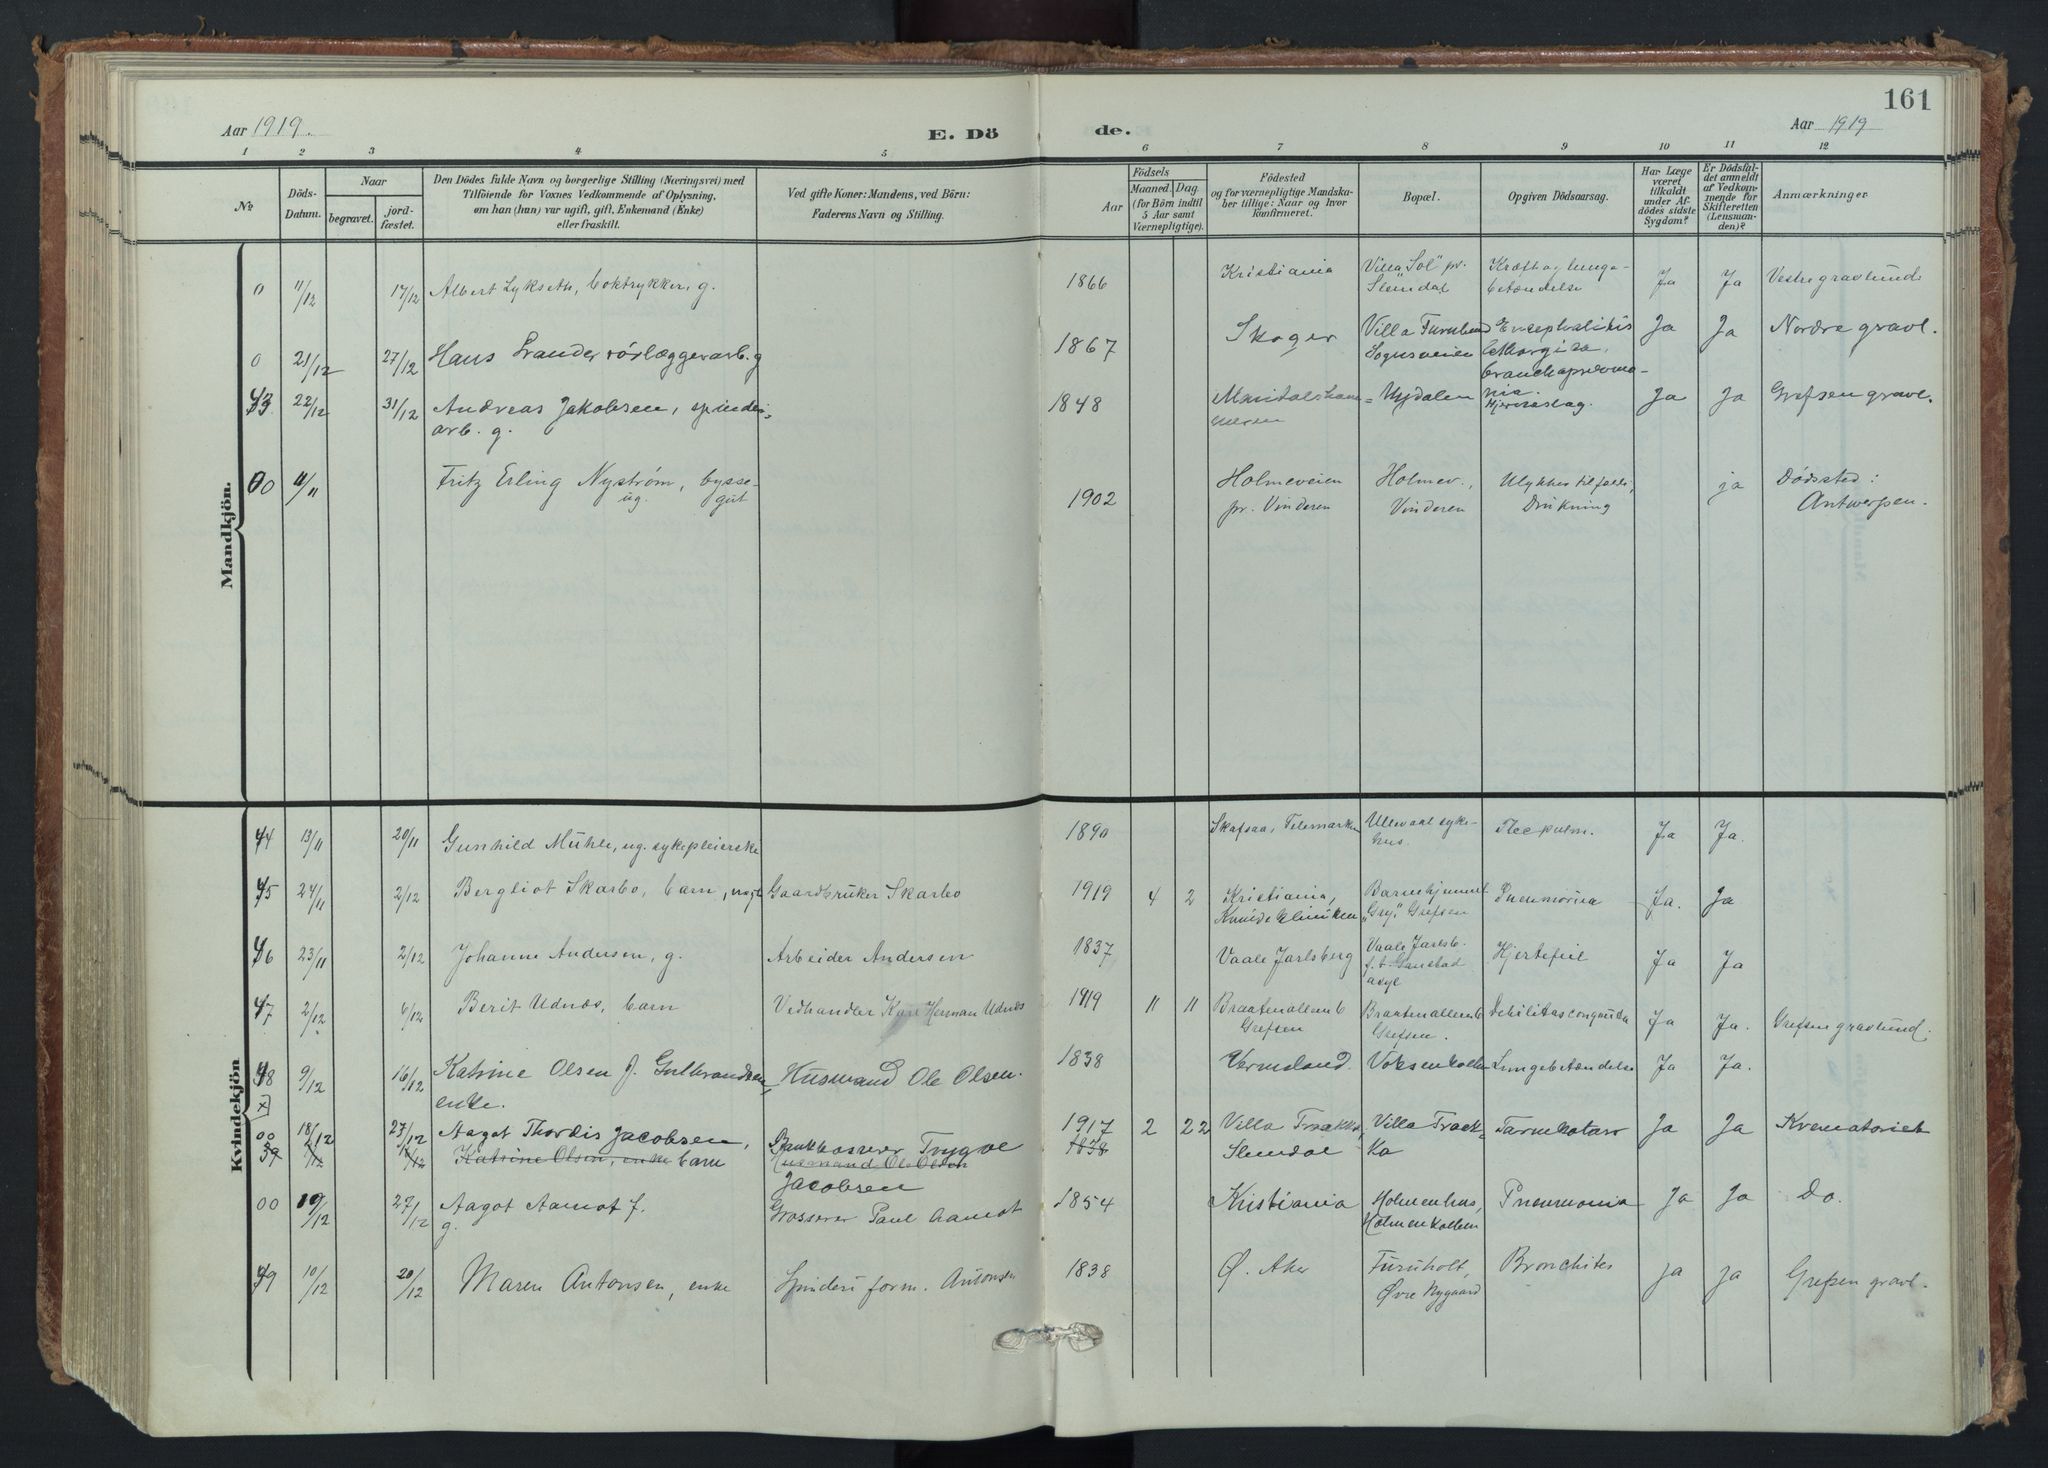 161
Aar 1919.
E. Dö
de.
Aar 1919
1 2 3 4 5 6 7 8 9 10 11 12
№
Döds-Datum.
Naar
begravet.
jord-fæstet.
Den Dödes fulde Navn og borgerlige Stilling (Næringsvei) med
Tilföiende for Voxnes Vedkommende af Oplysning,
om han (hun) var ugift, gift, Enkemand (Enke)
eller fraskilt.
Ved gifte Koner: Mandens, ved Börn:
Faderens Navn og Stilling.
Födsels
Aar
Maaned.
Dag
(for Börn indtil
5 Aar samt
Værnepligtige).
Födested
og for værnepligtige Mandska-
ber tillige: Naar og hvor
konfirmeret.
Bopæl.
Opgiven Dödsaarsag.
Har Læge
været
tilkaldt
under Af-
dödes sidste
Sygdom?
Er Dödsfal-
det anmeldt
af Vedkom-
mende for
Skifteretten
(Lensman-
den)?
Anmærkninger
Mandkjön.
0 11/12 17/12 Albert Lykseth, boktrykker, g. 1866 Kristiania Villa "Sol" pr. Kræft og lunge- Ja Ja Vestre gravlund
Slemdal betændelse
0 21/12 27/12 Hans rörlæggerarb. g 1867 Skoger Villa Furulund Encephalitis Ja Ja Nordre gravl.
Sognsveien lethargica,
43 22/12 31/12 Andreas Jakobsen, spinderi- 1848 Nydalen Hjerneslag. Ja Ja Grefsen gravl.
arb. g.
00 11/11 Fritz Erling Nystrøm, bysse- 1902 Holmeveien Holmev., Ulykkestilfælde, ja Dødssted:
ug. gut pr. Vinderen Vinderen Drukning Antwerpen.
Kvindekjön
44 13/11 20/11 Gunhild Mühle, ug. sykepleierske 1890 Skafsaa, Telemarken Ullevaal syke- Ja Ja.
hus.
45 24/11 2/12 Bergliot Skarbo, barn, Gaardbruker Skarbo 1919 4 2 Kristiania, Barnehjemmet Pneumonia Ja. Ja
"Gry," Grefsen
46 23/11 2/12 Johanne Andersen, g. Arbeider Andersen 1837 Vaale Jarlsberg Vaale Jarlsb. Hjertefeil Ja Ja
f.t. Gaustad
asyl
47 2/12 6/12 Berit Udnæs, barn Vedhandler Karl Herman Udnæs 1919 11 11 Braatenalleen 6 Braatenalleen 6 Debilitas congenita Ja Ja. Grefsen gravlund.
Grefsen Grefsen.
48 9/12 16/12 Katrine Olsen f. Gulbrandsen, Husmand Ole Olsen. 1838 Vermeland. Voksenkollen Lungebetændelse Ja Ja.
enke.
00 18/12 27/12 Aagot Thordis Jacobsen, Bankkasserer Trygve 1917 2 22 Villa Trækka, Villa Træk- Tarmkatarr Ja Ja Krematoriet
39 Katrine Olsen, enke barn Husmand Ole Olsen 1838 Slemdal ka
Jacobsen
00 19/12 27/12 Aagot Aamot f. Grosserer Paul Aamot 1854 Kristiania Holmenhus, Pneumonia Ja Ja Do.
g. Holmenkollen
49 10/12 20/12 Maren Antonsen, enke Spinderi form. Antonsen 1838 Ø. Aker Furuholt, Bronchites ja ja Grefsen gravl.
Øvre Nygaard